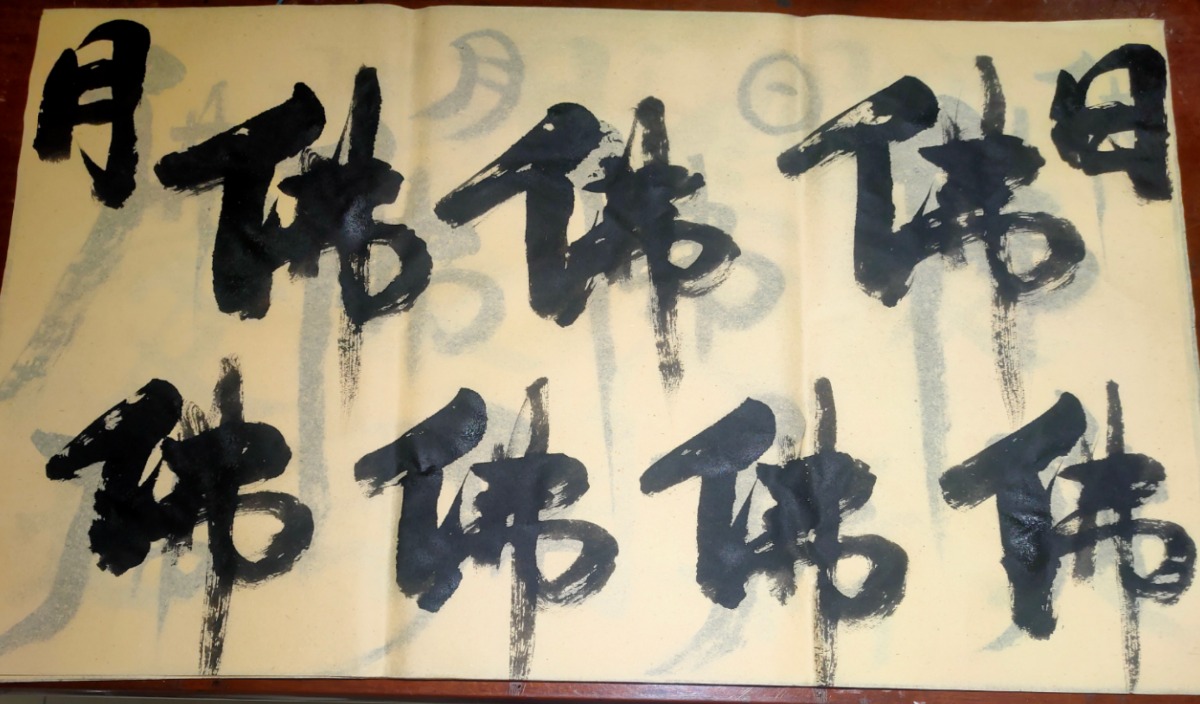 月佛佛佛日
佛佛佛佛